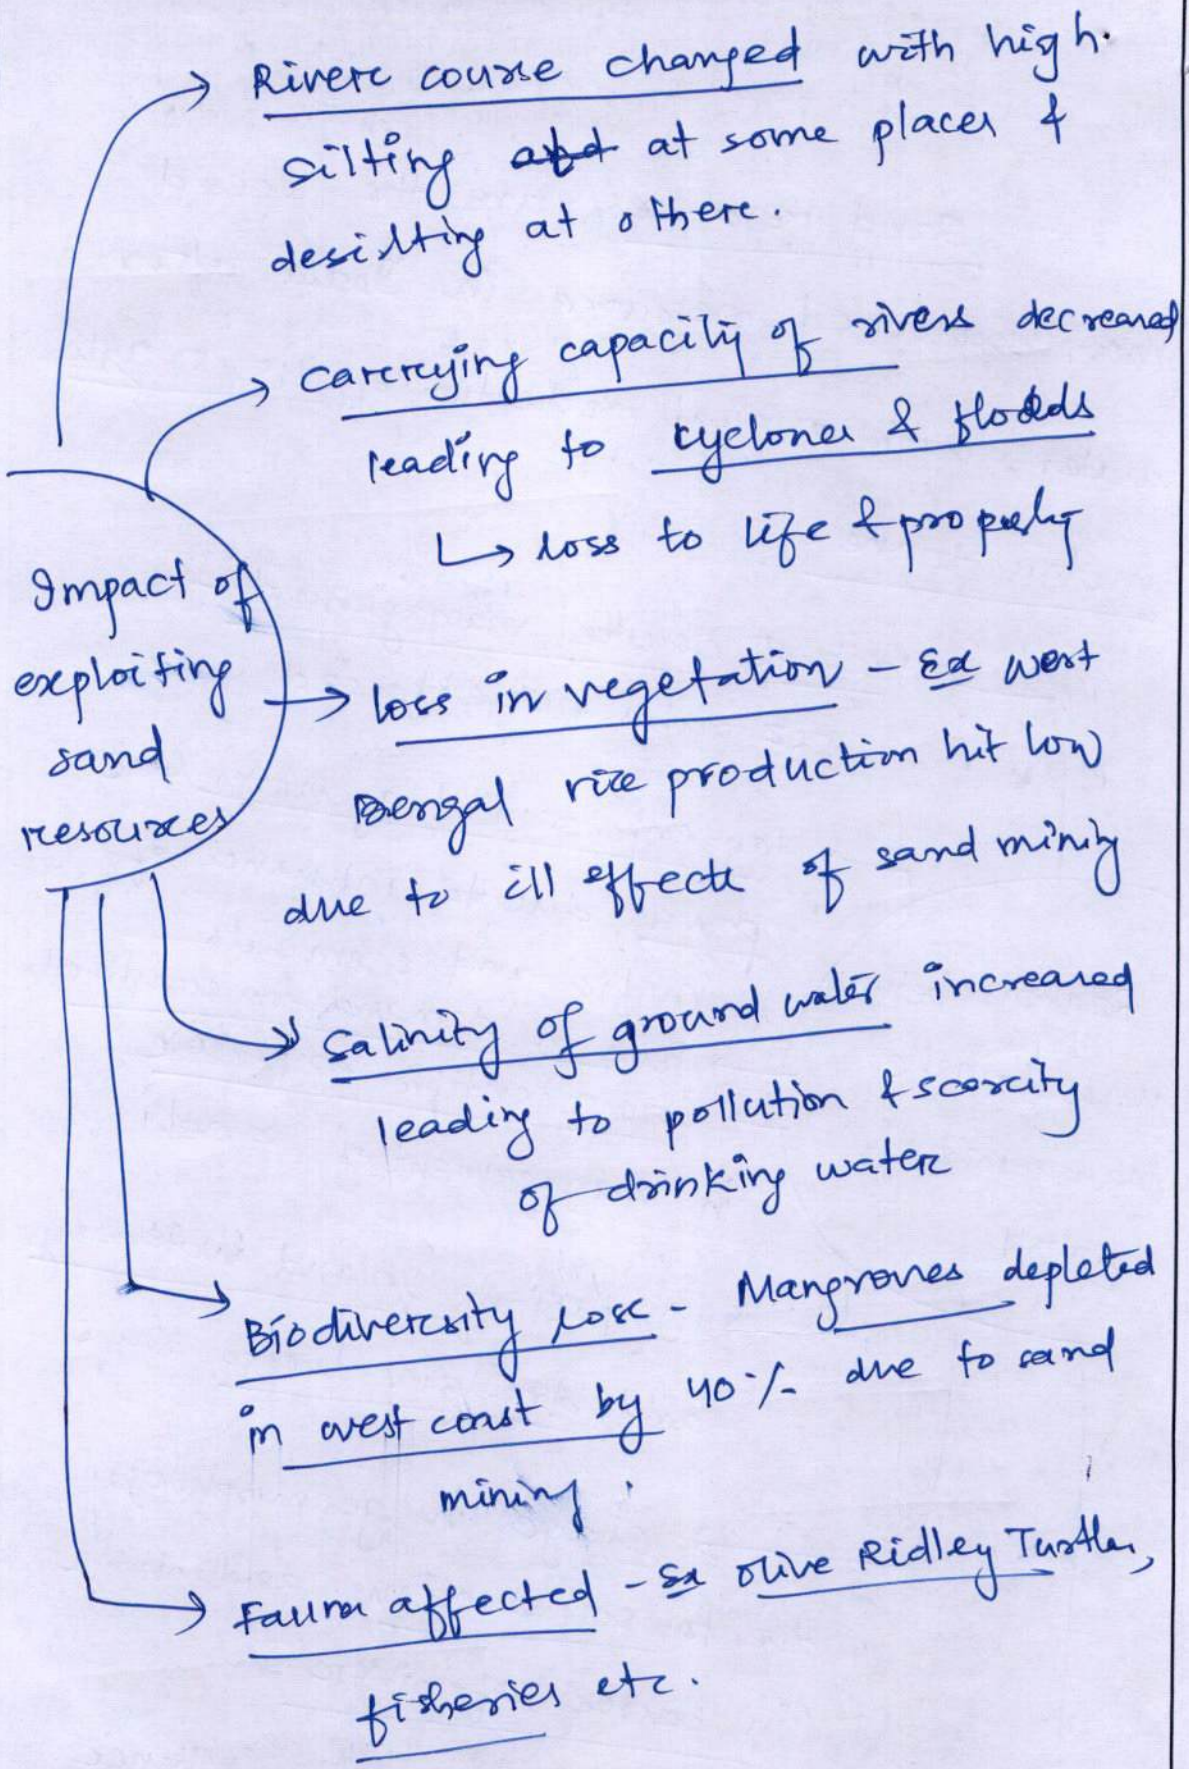 River course changed with high
silting at some places &
desilting at others.
Carrying capacity of rivers decreased
leading to cyclones & floods
↳ loss to life & property
Impact of
exploiting
sand
resources
loss in vegetation - Ex West
Bengal rice production hit low
due to ill effects of sand mining
Salinity of ground water increased
leading to pollution & scarcity
of drinking water
Biodiversity loss - Mangroves depleted
in west coast by 40% due to sand
mining.
Fauna affected - Ex Olive Ridley Turtles,
fisheries etc.